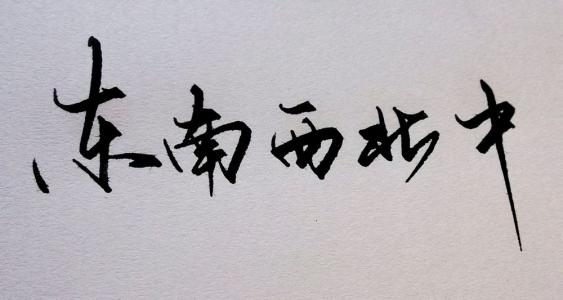 东南西北中